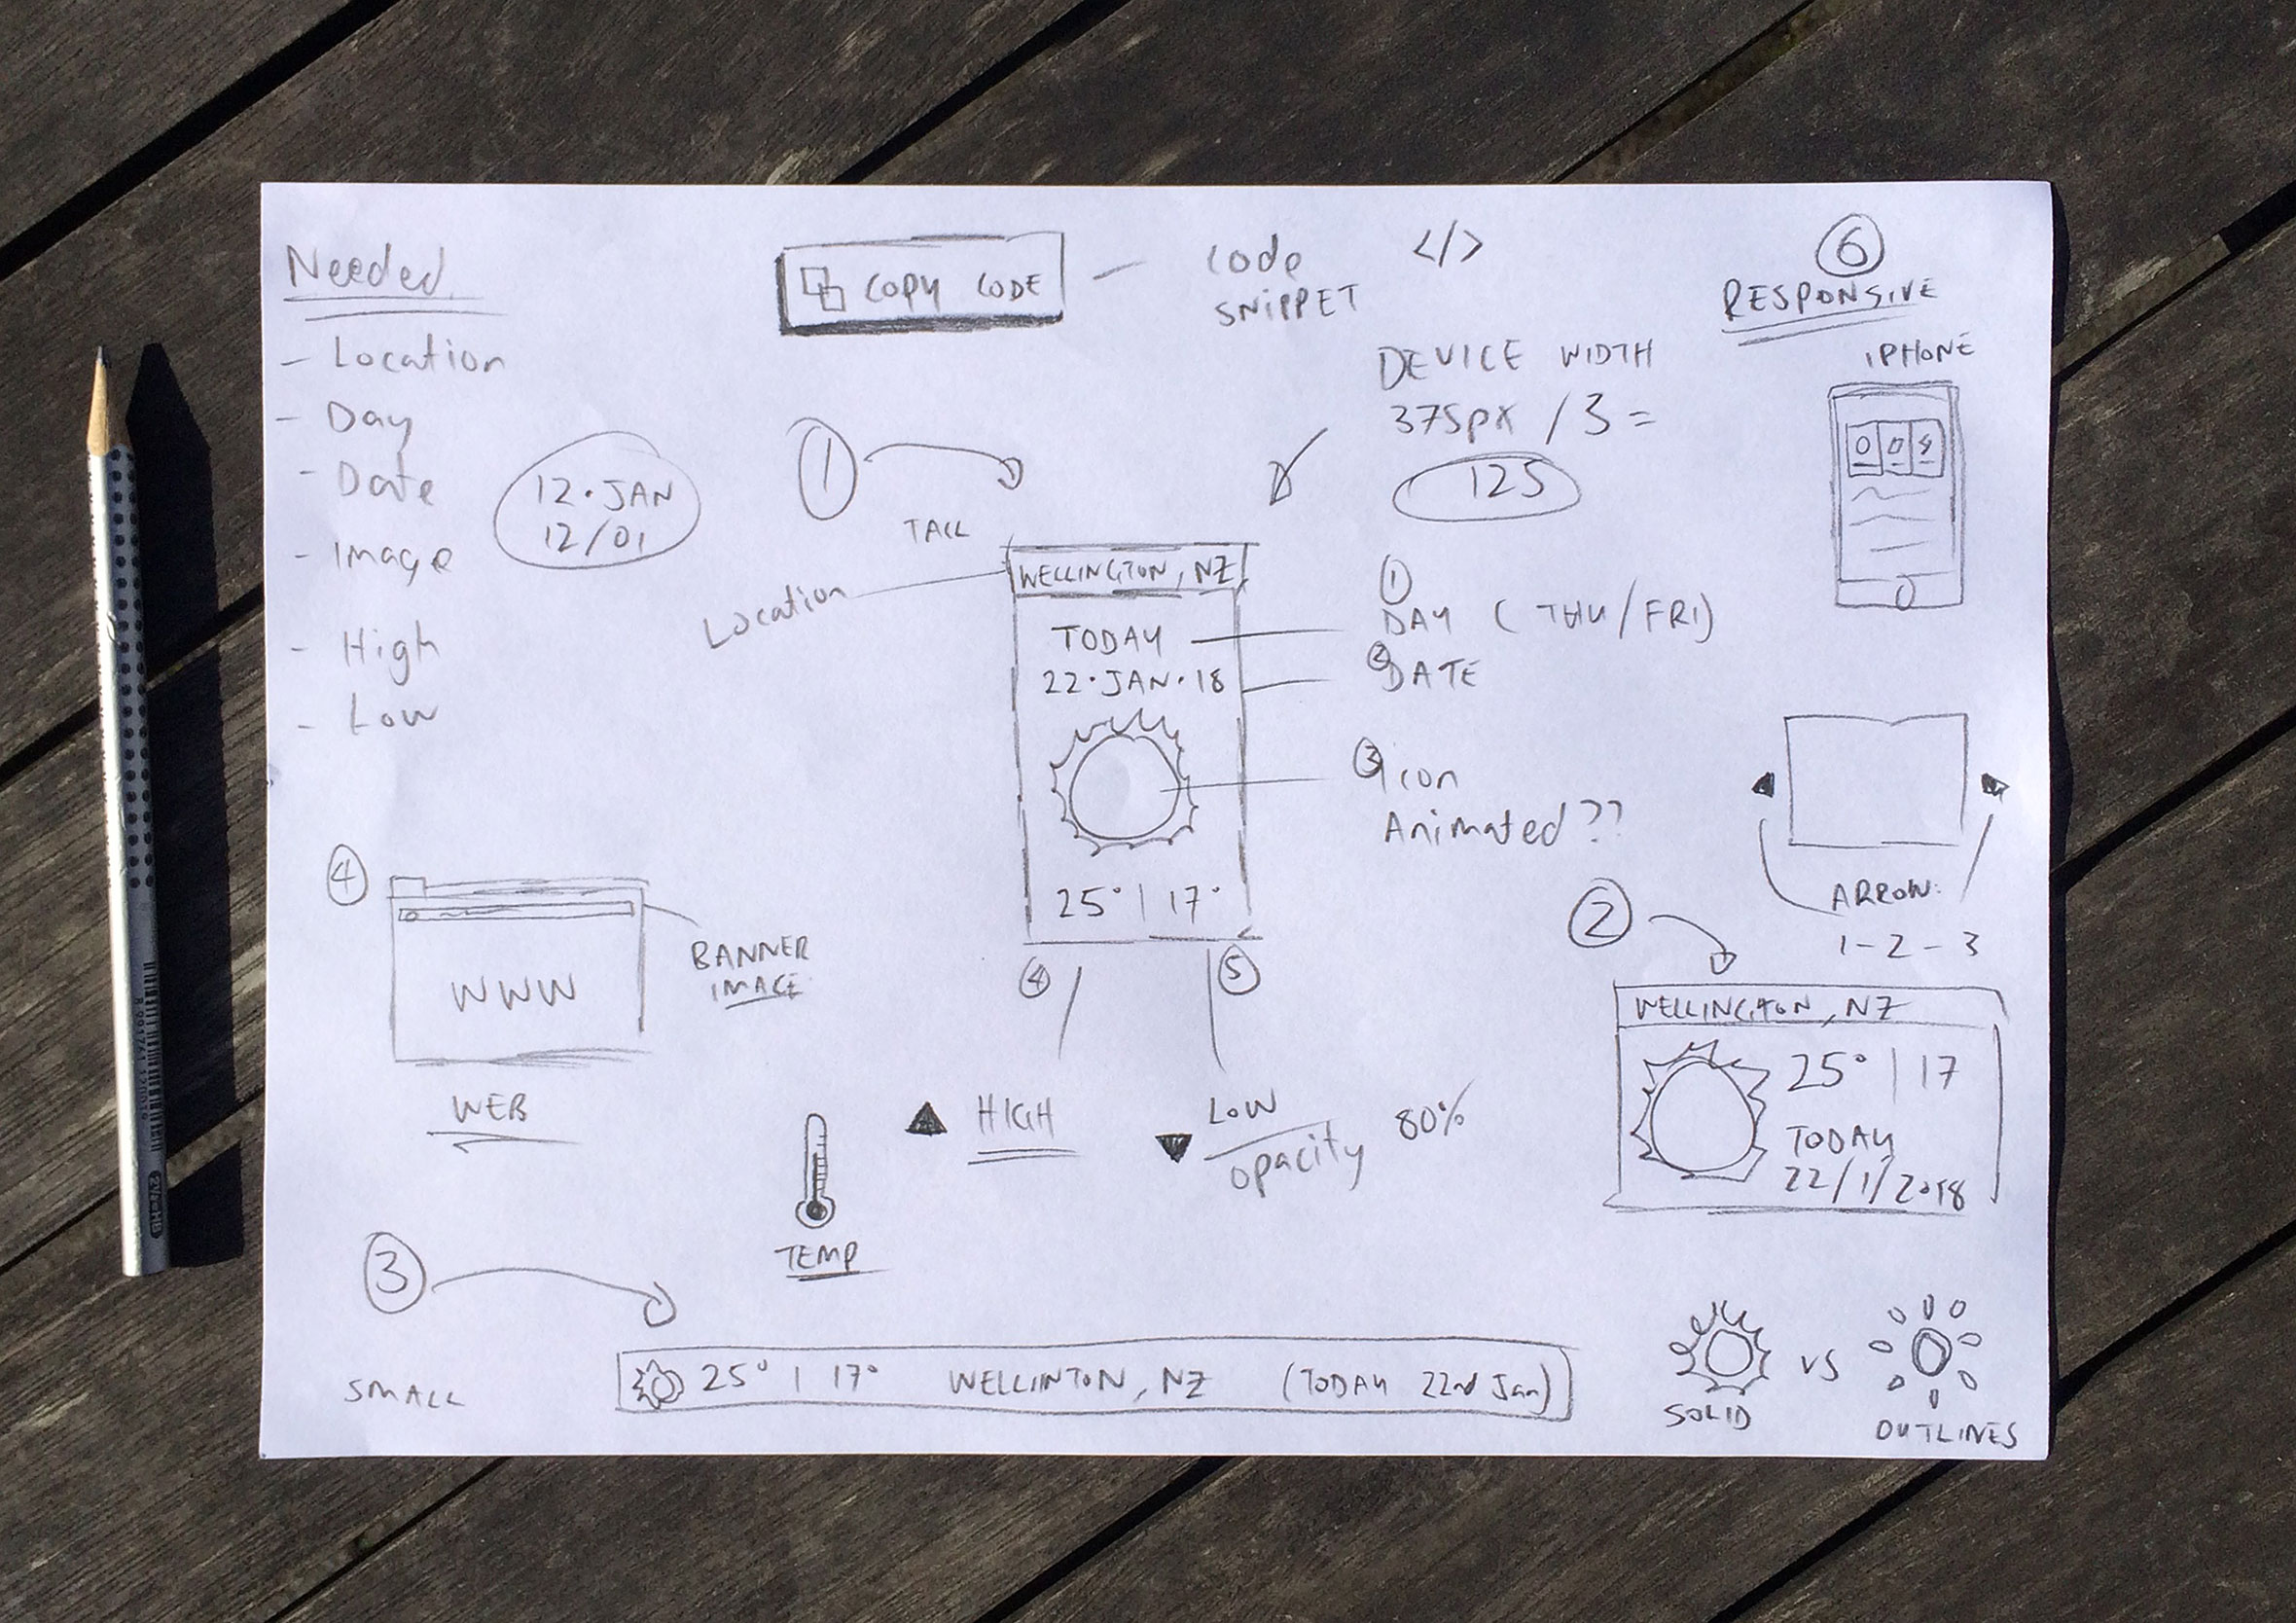 Needed
- Location
- Day
- Date
- Image
- High
- Low
12·JAN
12/01
COPY CODE
Code
SNIPPET
</>
6
RESPONSIVE
IPHONE
DEVICE WIDTH
375px / 3 =
125
1
TALL
Location
WELLINGTON, NZ
TODAY
22·JAN·18
25° | 17°
1
DAY (THU/FRI)
2
DATE
3
Icon
Animated??
4
5
HIGH
LOW
opacity 80%
TEMP
4
WWW
BANNER
IMAGE
WEB
ARROW:
1-2-3
2
WELLINGTON, NZ
25° | 17
TODAY
22/1/2018
3
SMALL
25° | 17° WELLINTON, NZ (TODAY 22nd Jan)
SOLID
VS
OUTLINES